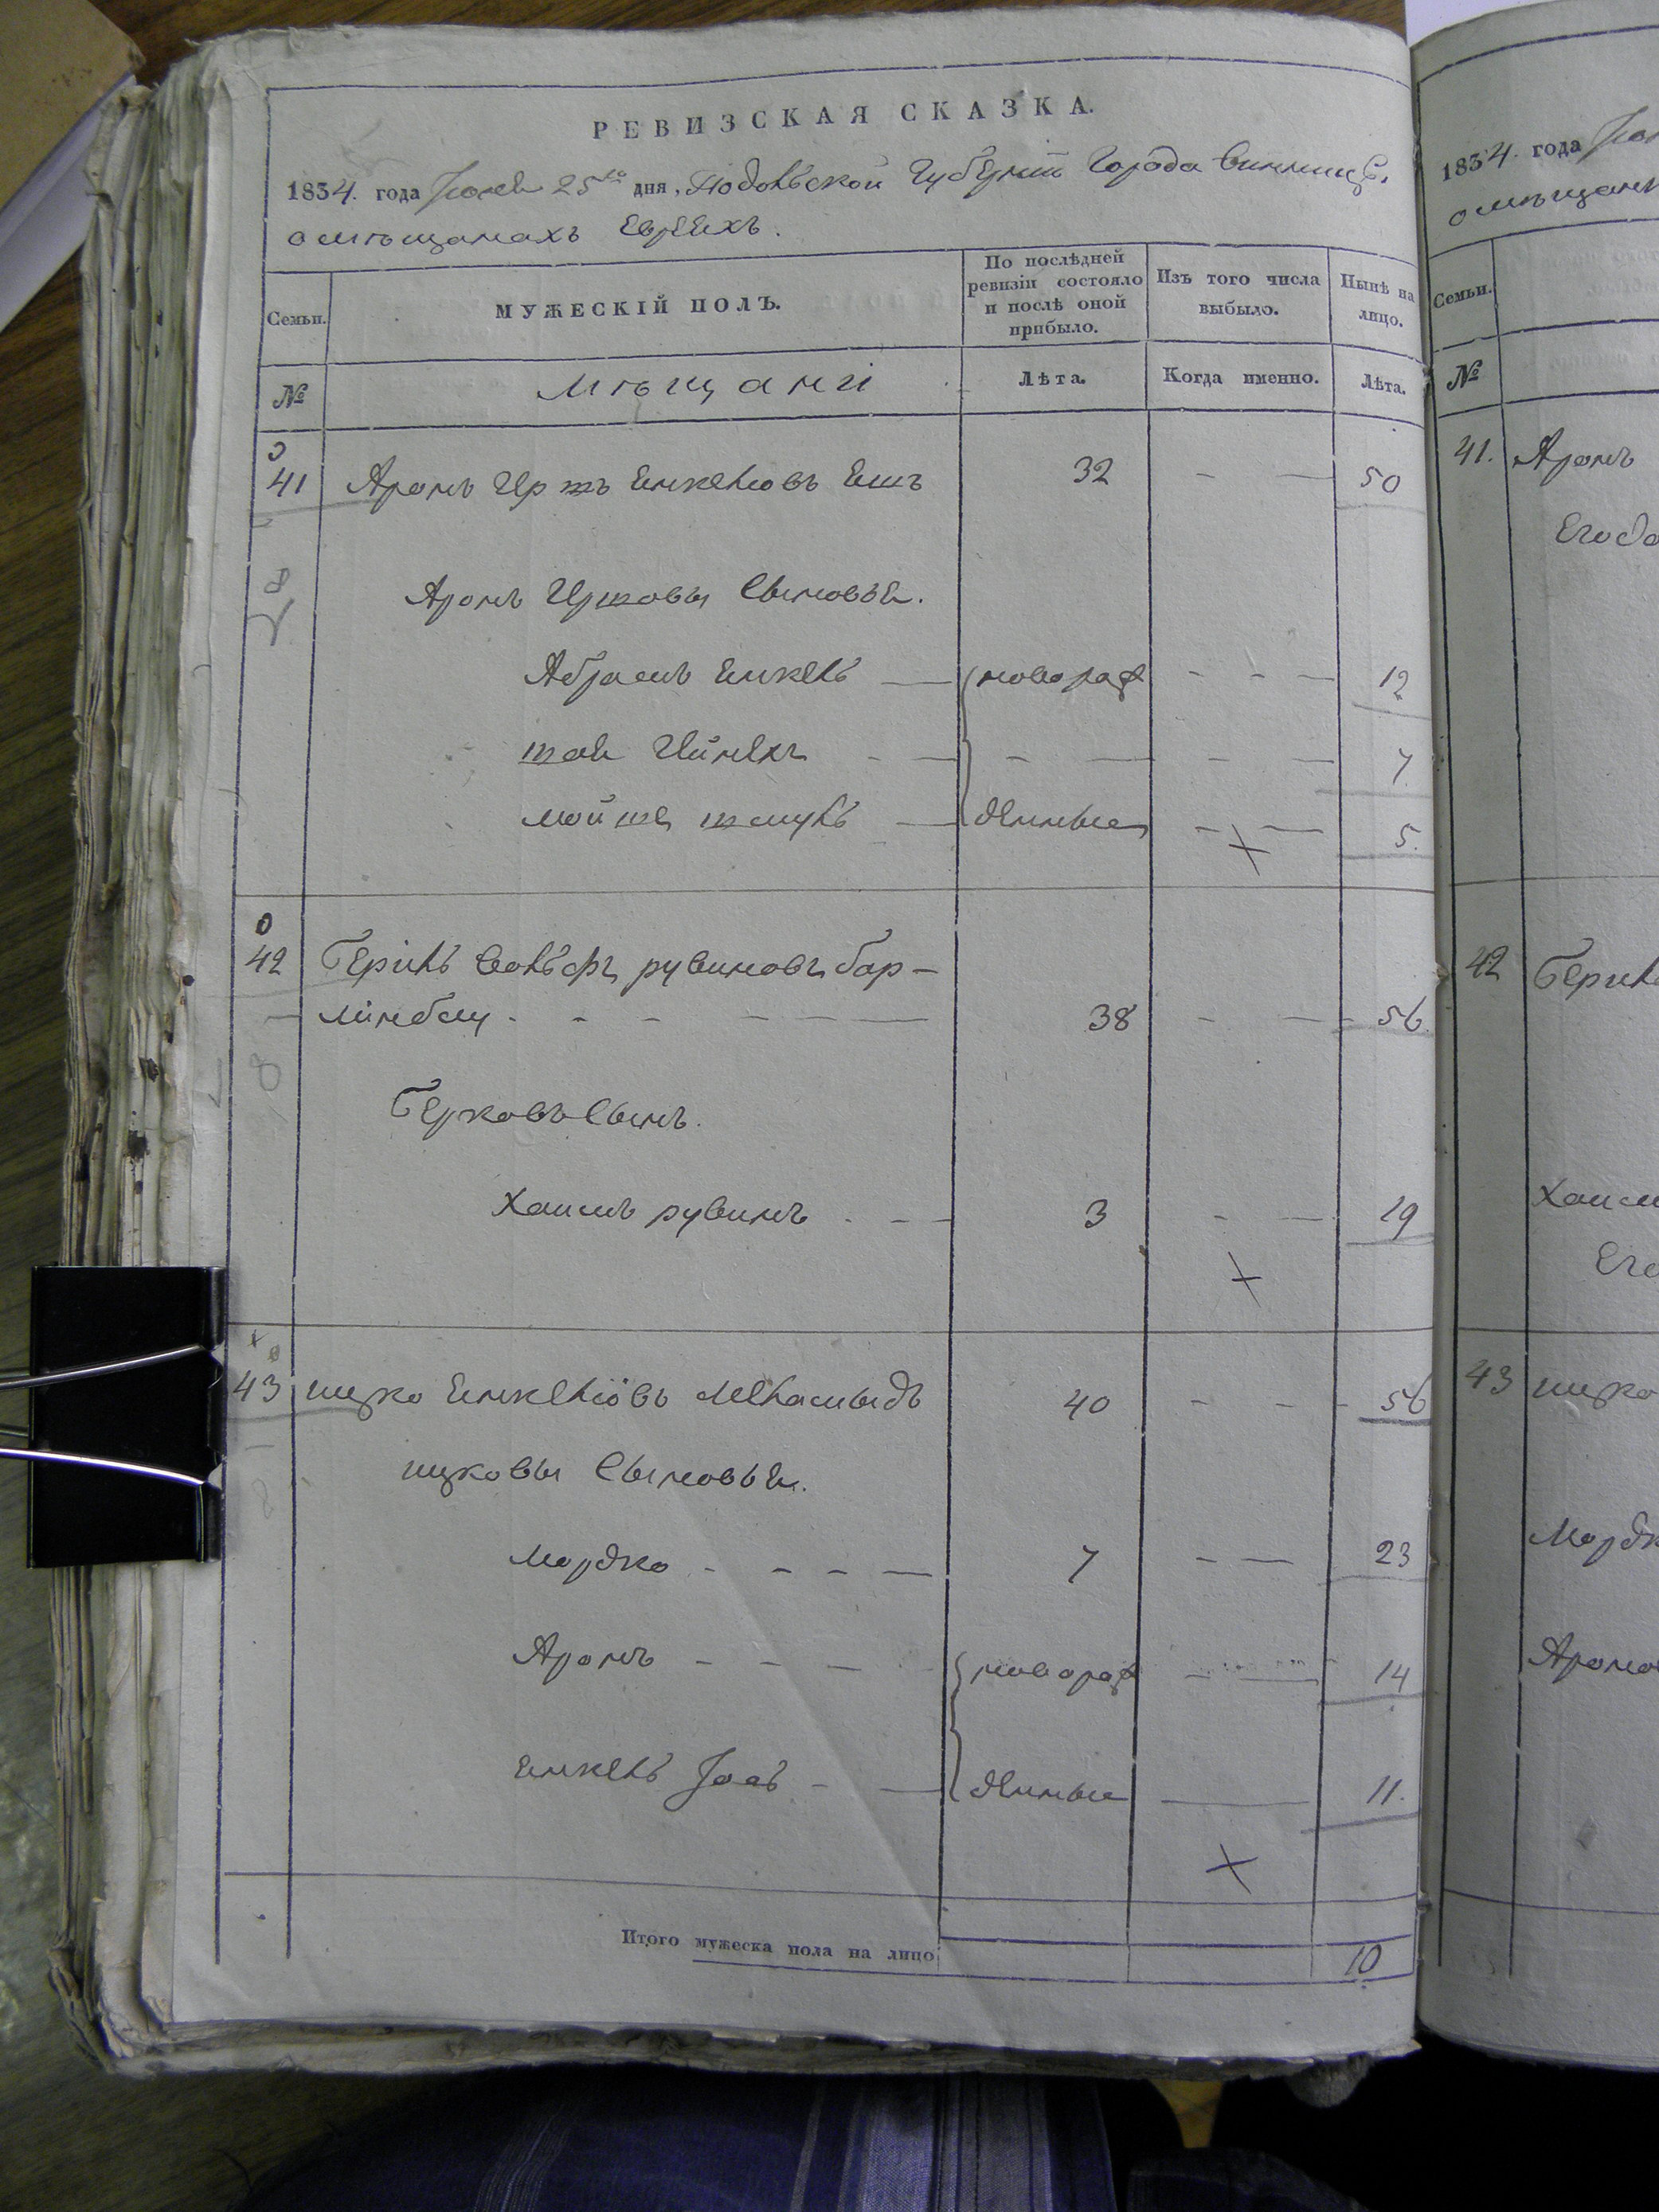 РЕВИЗСКАЯ СКАЗКА.
1834. года 25го дня, Подольской Губерніи Города Винницы,
о мѣщанахъ Евреяхъ.
Семьи.
МУЖЕСКІЙ ПОЛЪ.
По послѣдней ревизіи состояло и послѣ оной прибыло.
Изъ того числа выбыло.
Нынѣ на лицо.
№ мѣщани Лѣта. Когда именно. Лѣта.
41 Аронъ Янкелювъ 32 — — 50
8
Аронъ Сыновья.
Абрамъ Янкель — новорож — — — 12
— — — — — — 7
Мойше — денные — — 5.
42 Берилъ Вольфъ рувиновъ бар-
38 — — 56
8
Берковъ Сынъ.
Хаимъ рувинъ - - — 3 — — 19
43 ицко Янкелiовъ 40 — — — 56
ицковы Сыновья.
Мордко - - - - — 7 — — 23
Аронъ — — — — новорож — — 14
Янкель — — денные — 11.
Итого мужеска пола на лицо 10
1834. года
о мѣщан
Семьи.
№
41. Аронъ
42 Берил
Хаим
Его
43 ицко
Мордк
Аронъ